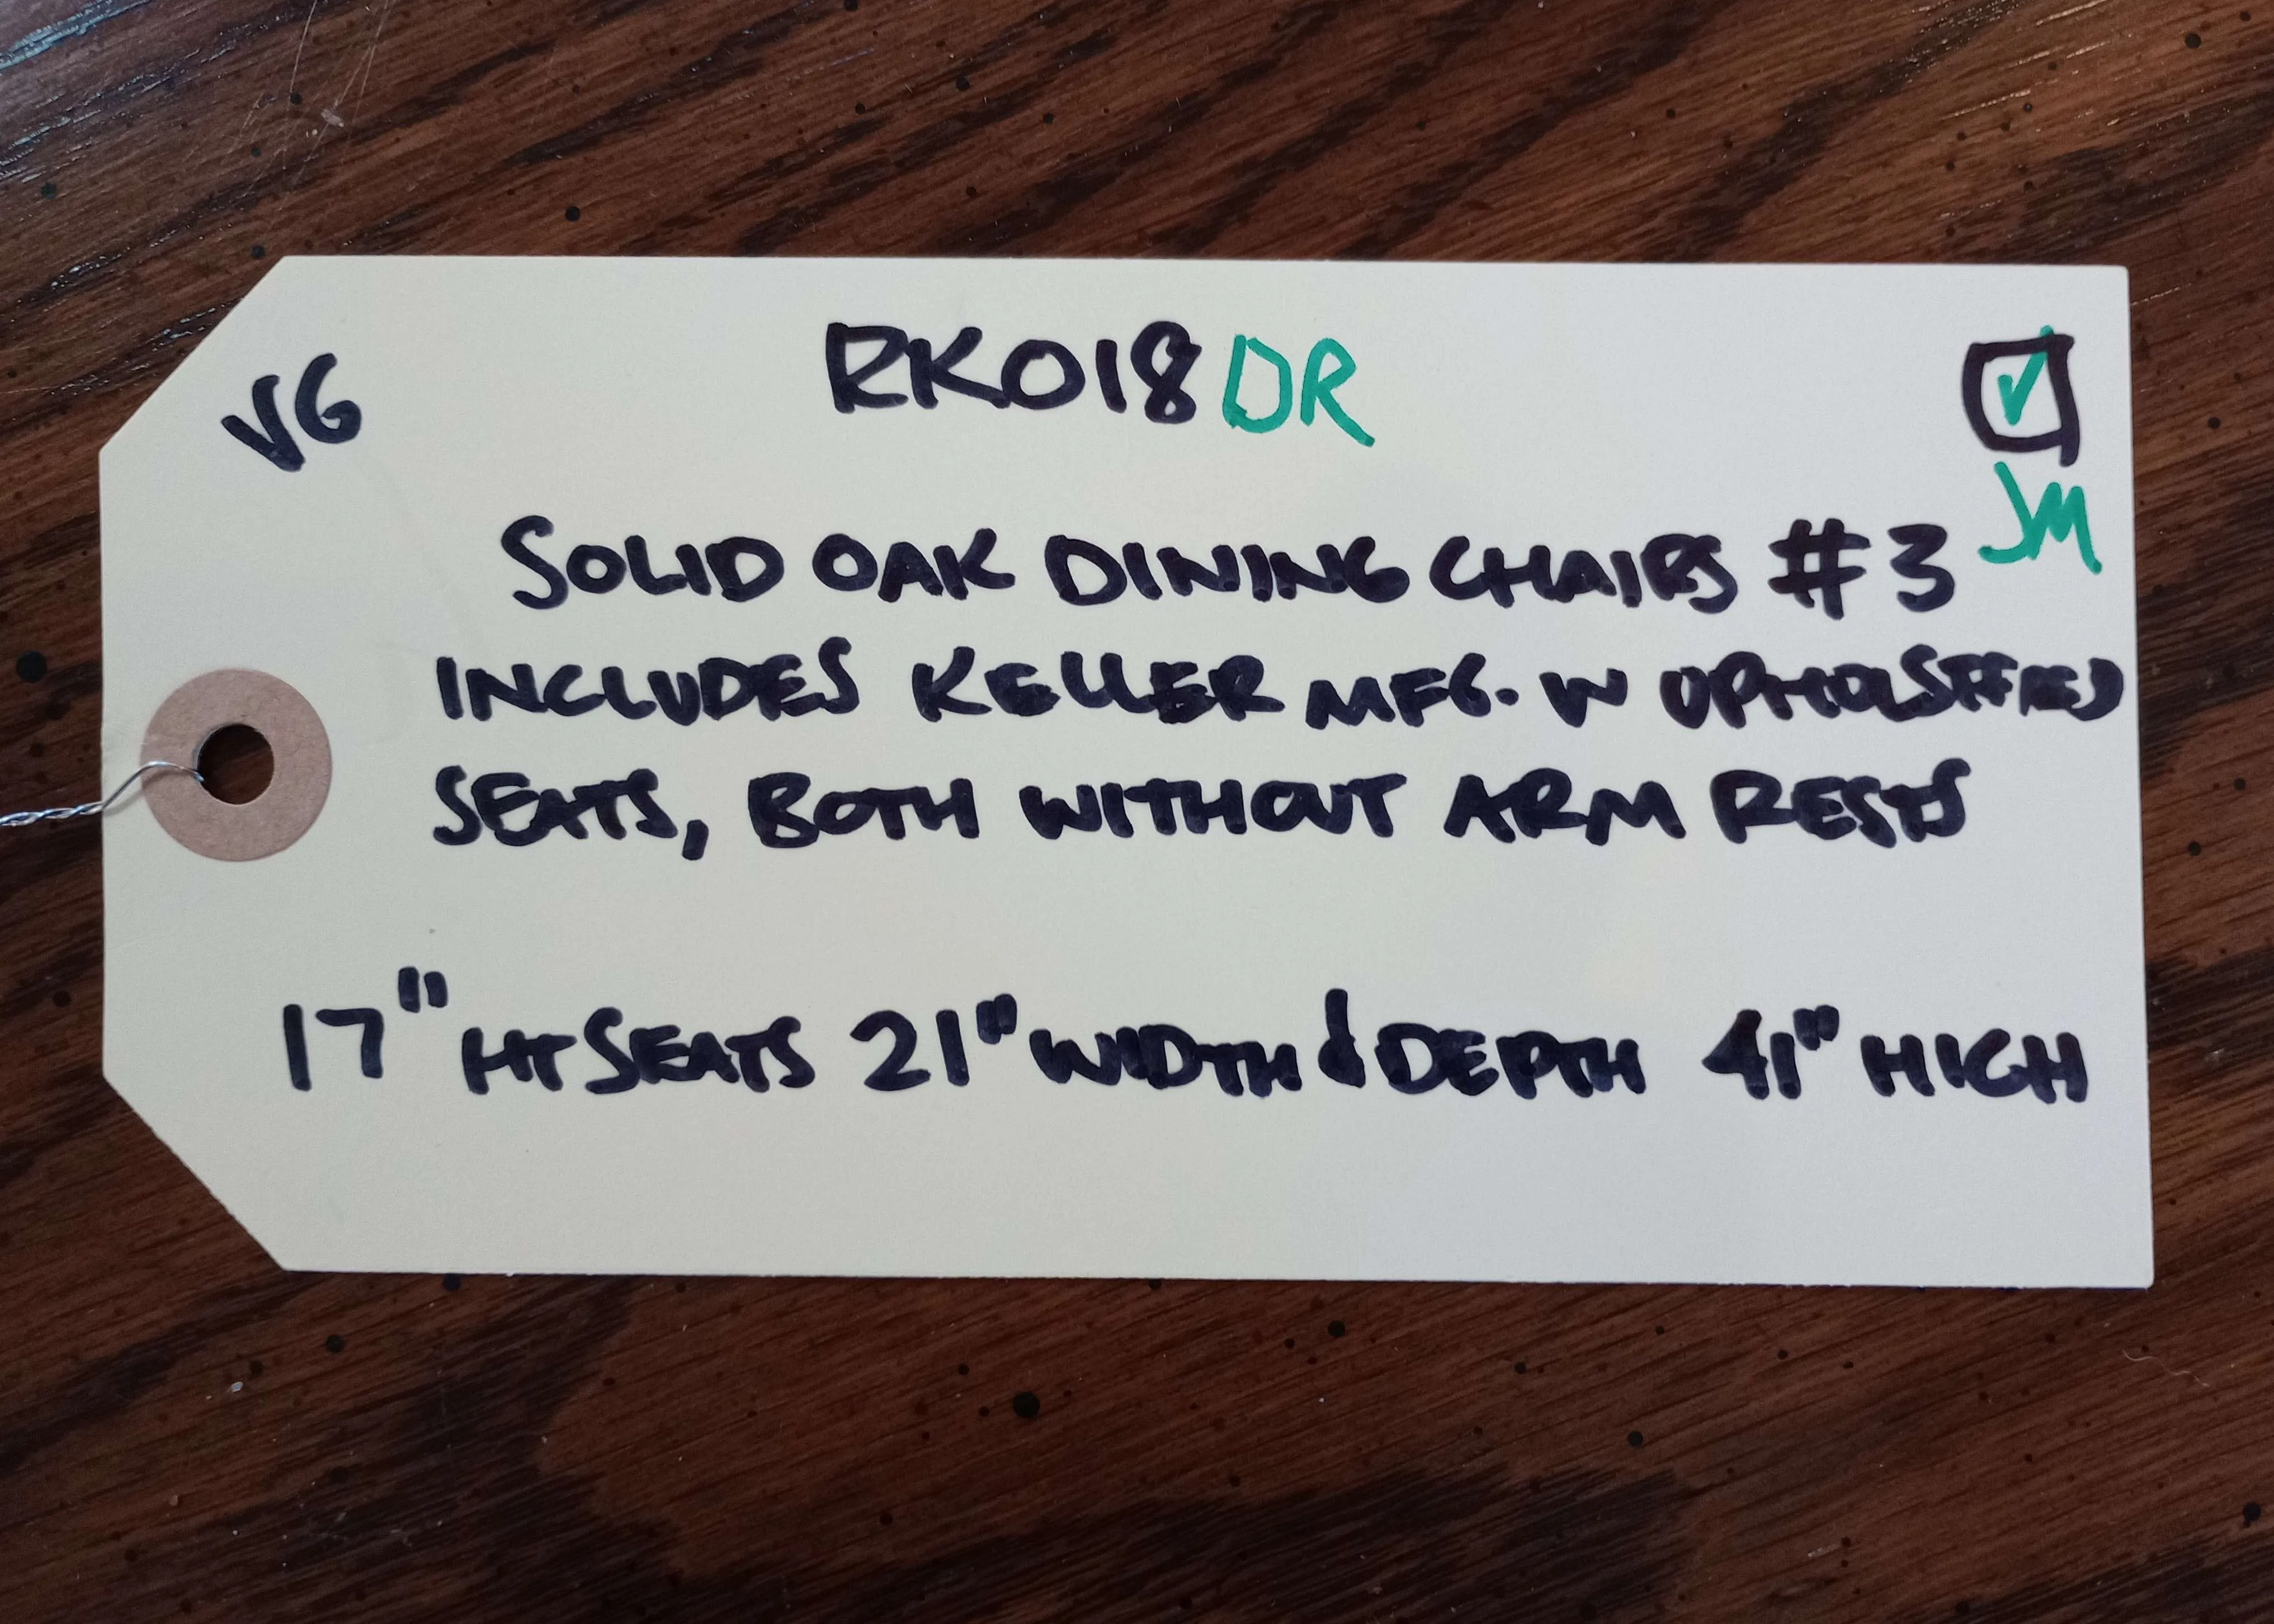 VG RK018 DR
JM
SOLID OAK DINING CHAIRS #3
INCLUDES KELLER MFG. W UPHOLSTERED
SEATS, BOTH WITHOUT ARM RESTS
17" HT SEATS 21" WIDTH & DEPTH 41" HIGH